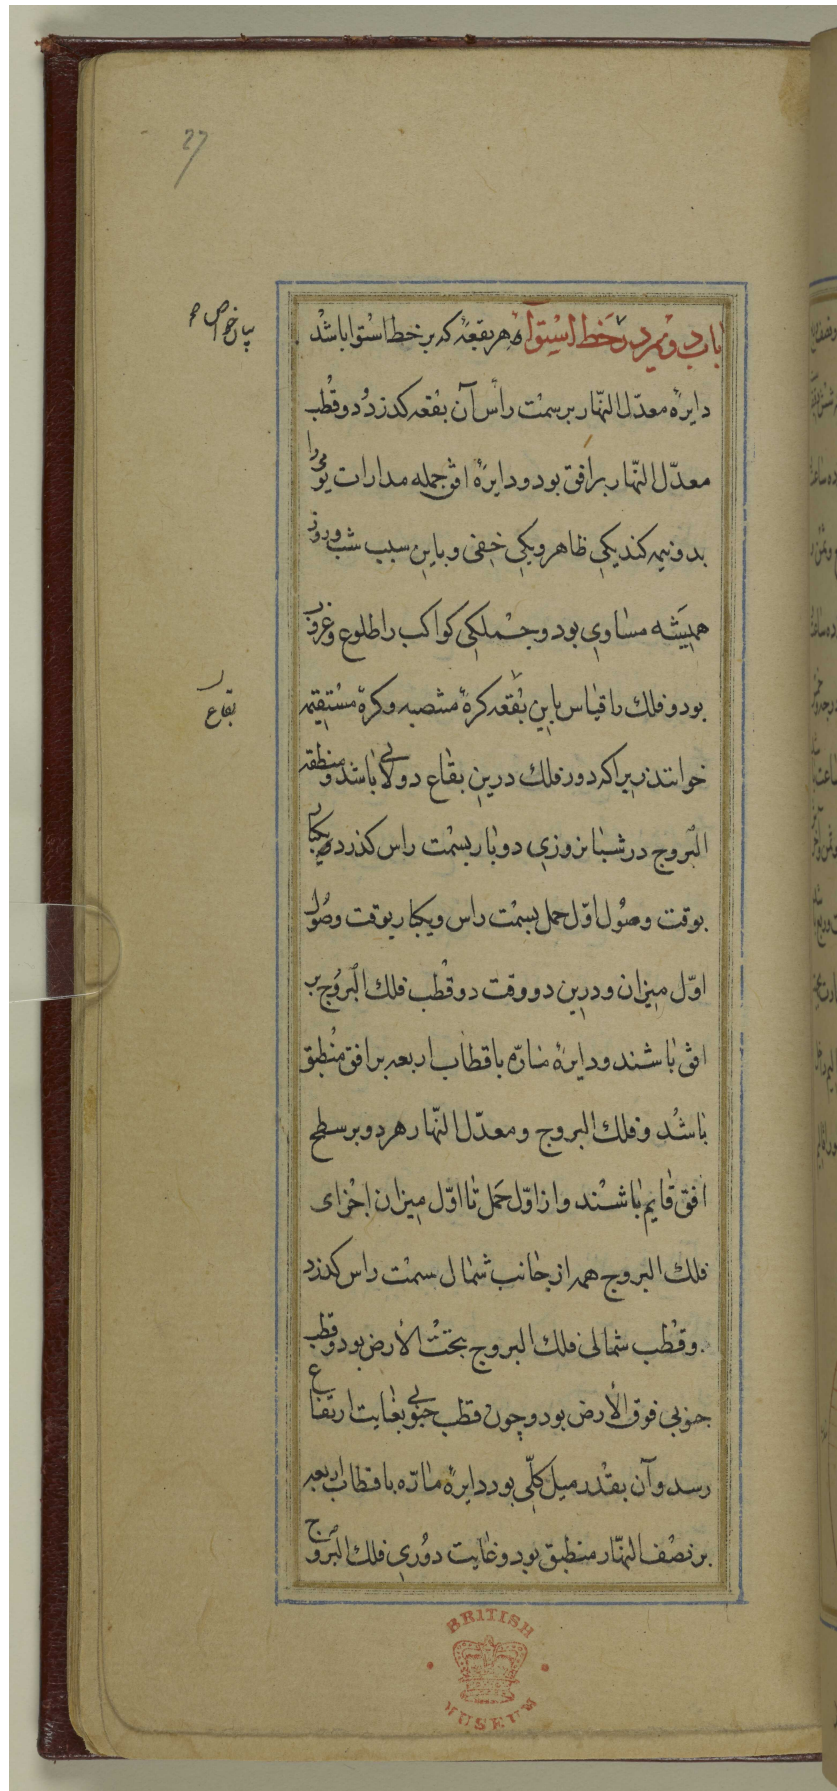 27
باب دویم در خط استوا هر بقعۀ که بر خط استوا باشد
بیان خواص
دایرۀ معدّل النّهار بر سمت رأس آن بقعه کذرد و دو قطب
معدّل النّهار بر افق بود و دایرۀ افق جمله مدارات یومی را
بدو نیمه کند یکی ظاهر و یکی خفی و باین سبب شب و روز
همیشه مساوی بود و جملکی کواکب را طلوع و غروب
بود و فلك را قیاس باین بقعه کرۀ منتصبه و کرۀ مستقیمه
بقاع
خوانند زیرا که دور فلك درین بقاع دولابی باشد و منطقه
البروج در شبانروزی دو بار بسمت راس کذرد یکبار
بوقت وصول اوّل حمل بسمت راس و یکبار بوقت وصول
اوّل میزان و درین دو وقت دو قطب فلك البروج بر
افق باشند و دایرۀ مارّه باقطاب اربعه بر افق منطبق
باشد و فلك البروج و معدّل النّهار هر دو بر سطح
افق قایم باشند و از اوّل حمل تا اوّل میزان اجزای
فلك البروج همه از جانب شمال سمت راس کذرد
و قطب شمالی فلك البروج بتحت الأرض بود و قطب
جنوبی فوق الأرض بود و چون قطب جنوبی بغایت ارتفاع
رسد و آن بقدر میل کلّی بود دایرۀ مارّه باقطاب اربعه
بر نصف النّهار منطبق بود و غایت دوری فلك البروج
BRITISH
MUSEUM